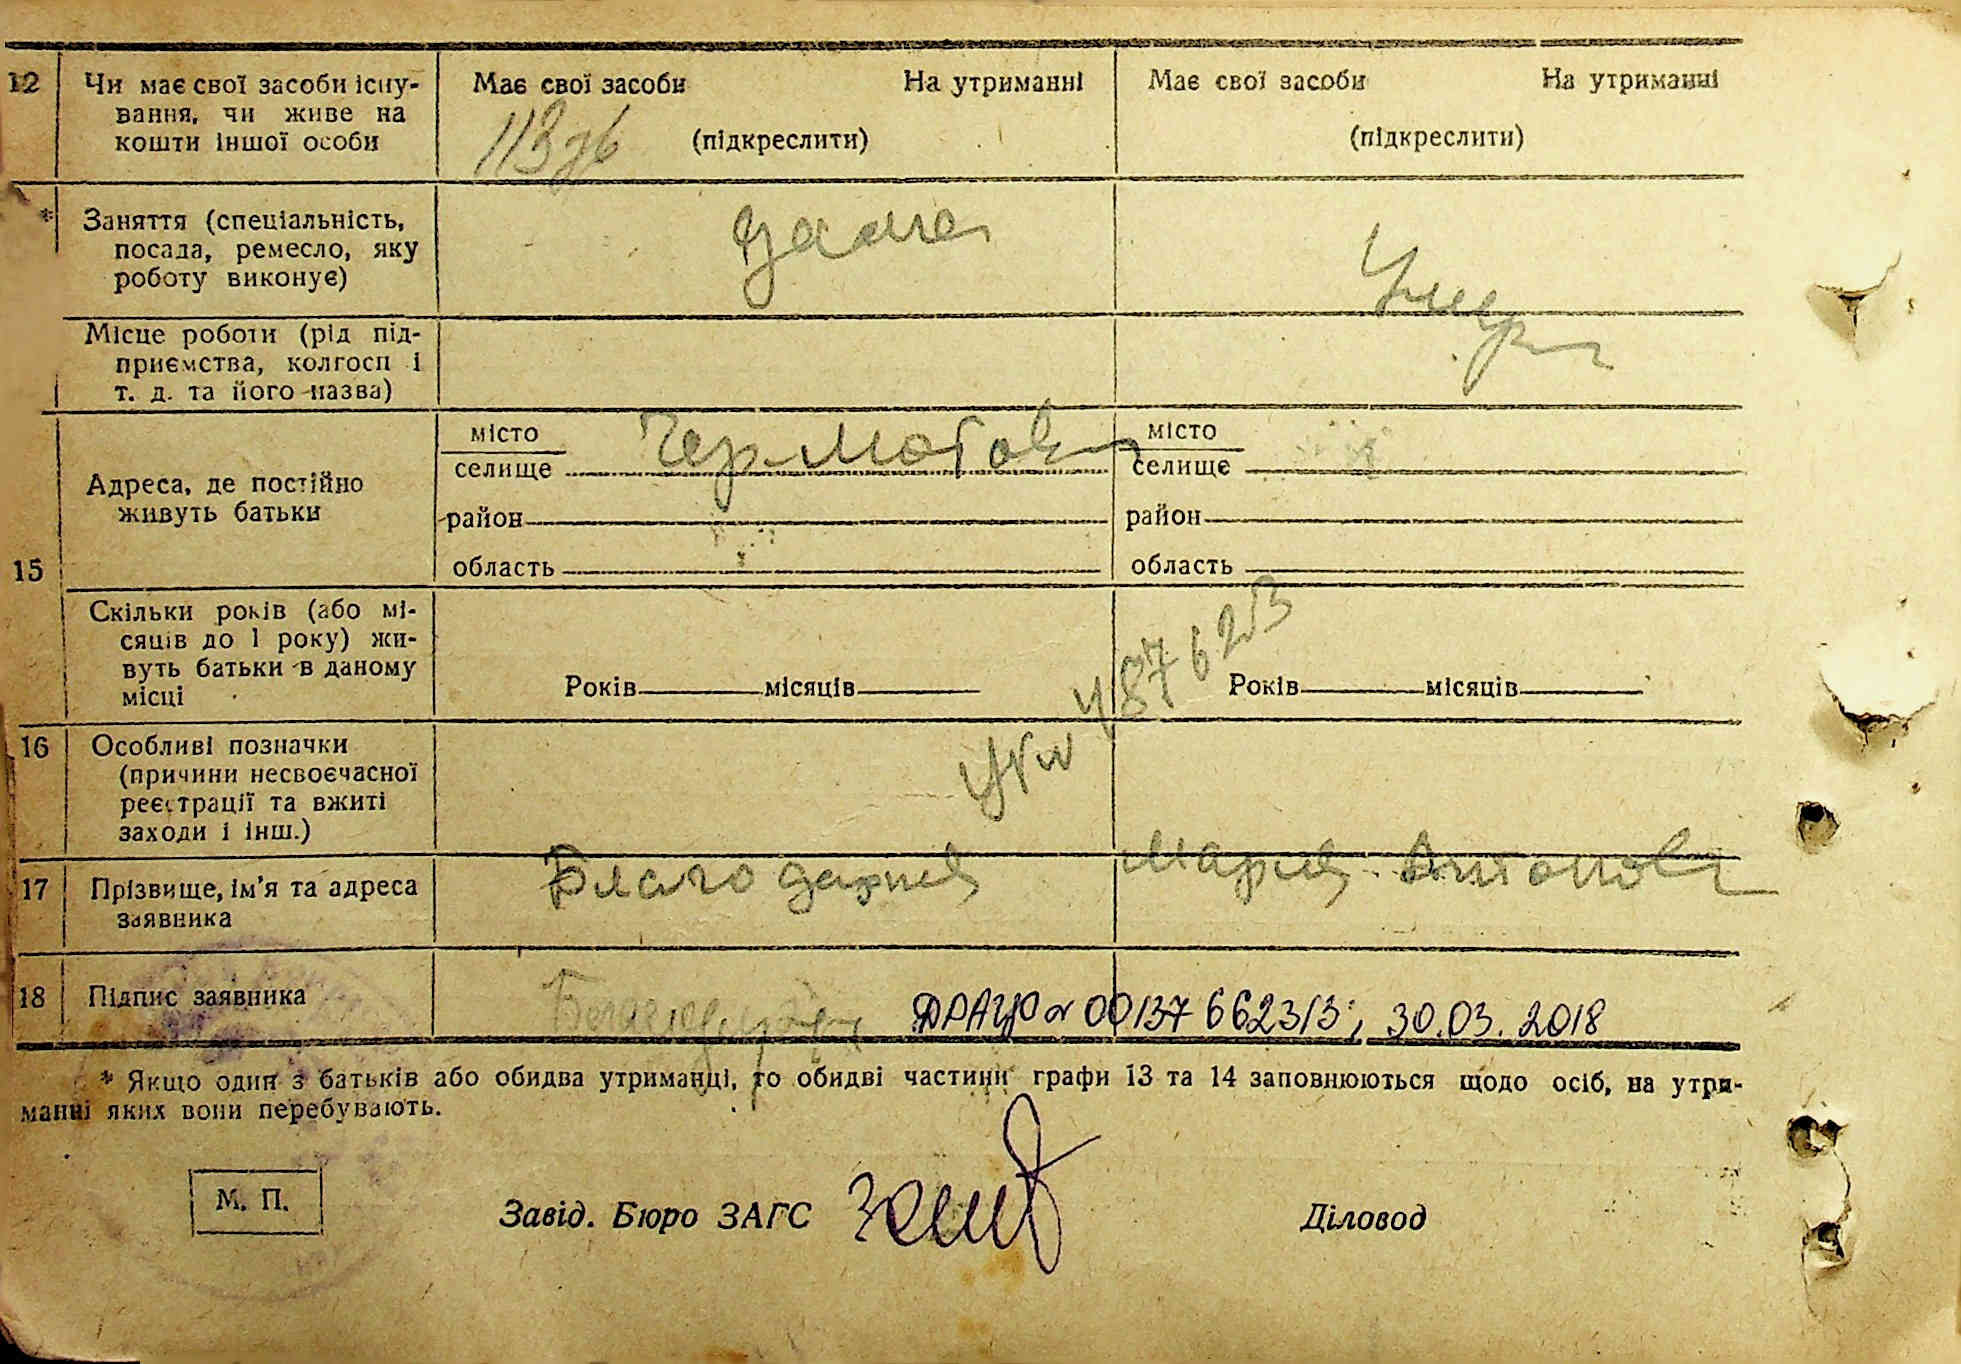 12 Чи має свої засоби існу-
вання, чи живе на
кошти іншої особи
Має свої засоби На утриманні
(підкреслити)
Має свої засоби На утриманні
(підкреслити)
* Заняття (спеціальність,
посада, ремесло, яку
роботу виконує)
Умер
Місце роботи (рід під-
приємства, колгосп і
т. д. та його назва)
15 Адреса, де постійно
живуть батьки
місто
селище
район
область
місто
селище
район
область
Скільки років (або мі-
сяців до 1 року) жи-
вуть батьки в даному
місці
Років місяців
Років місяців
16 Особливі позначки
(причини несвоєчасної
реєстрації та вжиті
заходи і інш.)
17 Прізвище, ім'я та адреса
заявника
Мария Антонов
18 Підпис заявника
ДРАЦС 00137662313; 30.03.2018
* Якщо один з батьків або обидва утриманці, то обидві частини графи 13 та 14 заповнюються щодо осіб, на утри-
манні яких вони перебувають.
М. П.
Завід. Бюро ЗАГС
Діловод